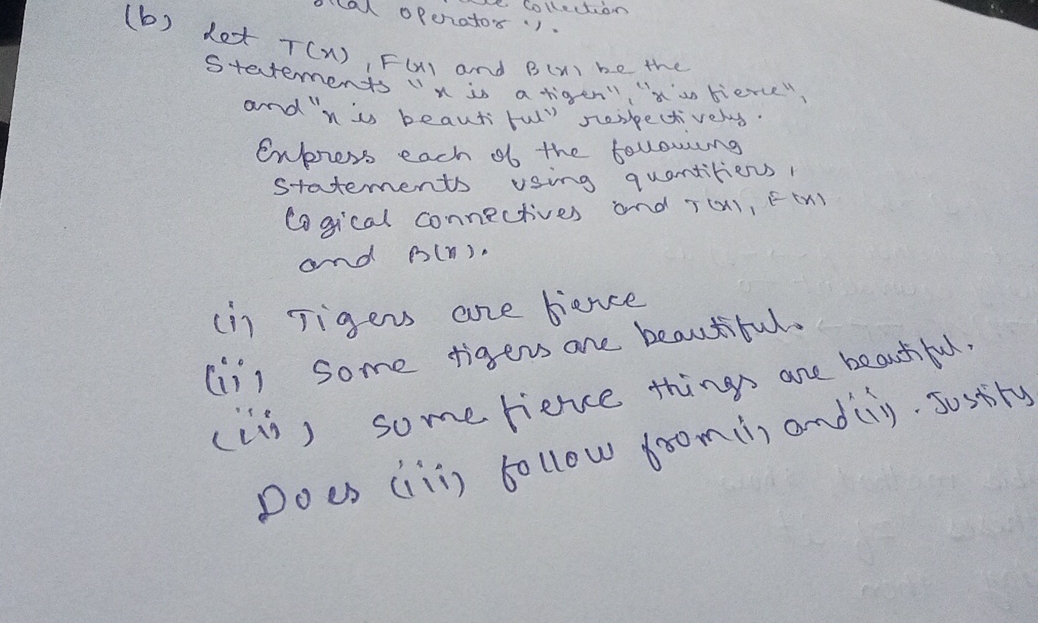 collection
operator ).
(b) Let T(x), F(x) and B(x) be the
Statements "x is a tiger", "x is fierce",
and "x is beautiful" respectively.
Express each of the following
statements using quantifiers,
logical connectives and T(x), F(x)
and B(x).
(i) Tigers are fierce
(ii) Some tigers are beautiful.
(iii) some fierce things are beautiful.
Does (iii) follow from (i) and (ii). Justify